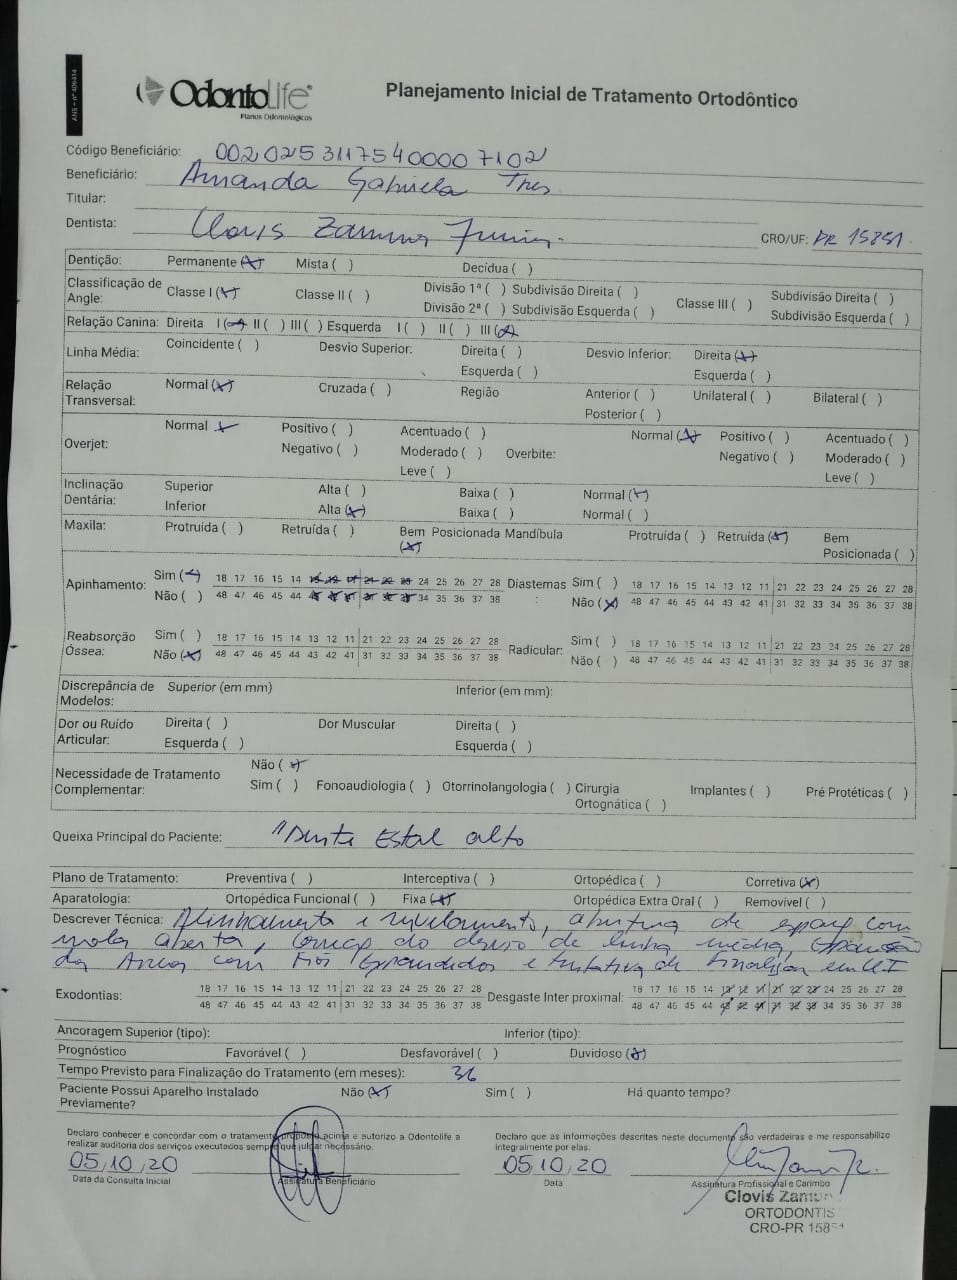 ANS - nº 406414
OdontoLife
Planos Odontológicos
Planejamento Inicial de Tratamento Ortodôntico
Código Beneficiário: 00202531175400007102
Beneficiário: Amanda Gabriela Tres
Titular:
Dentista: Clovis Zamuner Junior CRO/UF: PR 15851
Dentição: Permanente (X) Mista ( ) Decídua ( )
Classificação de Angle: Classe I (X) Classe II ( ) Divisão 1ª ( ) Subdivisão Direita ( ) Divisão 2ª ( ) Subdivisão Esquerda ( ) Classe III ( ) Subdivisão Direita ( ) Subdivisão Esquerda ( )
Relação Canina: Direita I (X) II ( ) III ( ) Esquerda I ( ) II ( ) III (X)
Linha Média: Coincidente ( ) Desvio Superior: Direita ( ) Esquerda ( ) Desvio Inferior: Direita (X) Esquerda ( )
Relação Transversal: Normal (X) Cruzada ( ) Região Anterior ( ) Posterior ( ) Unilateral ( ) Bilateral ( )
Overjet: Normal X Positivo ( ) Negativo ( ) Acentuado ( ) Moderado ( ) Leve ( ) Overbite: Normal (X) Positivo ( ) Negativo ( ) Acentuado ( ) Moderado ( ) Leve ( )
Inclinação Dentária: Superior Alta ( ) Baixa ( ) Normal (X)
Inferior Alta (X) Baixa ( ) Normal ( )
Maxila: Protruída ( ) Retruída ( ) Bem Posicionada (X) Mandíbula Protruída ( ) Retruída (X) Bem Posicionada ( )
Apinhamento: Sim (X) 18 17 16 15 14 13 12 11 21 22 23 24 25 26 27 28 Diastemas : Sim ( ) 18 17 16 15 14 13 12 11 21 22 23 24 25 26 27 28
Não ( ) 48 47 46 45 44 43 42 41 31 32 33 34 35 36 37 38 Não (X) 48 47 46 45 44 43 42 41 31 32 33 34 35 36 37 38
Reabsorção Óssea: Sim ( ) 18 17 16 15 14 13 12 11 21 22 23 24 25 26 27 28 Radicular: Sim ( ) 18 17 16 15 14 13 12 11 21 22 23 24 25 26 27 28
Não (X) 48 47 46 45 44 43 42 41 31 32 33 34 35 36 37 38 Não ( ) 48 47 46 45 44 43 42 41 31 32 33 34 35 36 37 38
Discrepância de Modelos: Superior (em mm) Inferior (em mm):
Dor ou Ruído Articular: Direita ( ) Esquerda ( ) Dor Muscular Direita ( ) Esquerda ( )
Necessidade de Tratamento Complementar: Não (X)
Sim ( ) Fonoaudiologia ( ) Otorrinolangologia ( ) Cirurgia Ortognática ( ) Implantes ( ) Pré Protéticas ( )
Queixa Principal do Paciente: "Dente Estal alto
Plano de Tratamento: Preventiva ( ) Interceptiva ( ) Ortopédica ( ) Corretiva (X)
Aparatologia: Ortopédica Funcional ( ) Fixa (X) Ortopédica Extra Oral ( ) Removível ( )
Descrever Técnica: Alinhamento e nivelamento, abertura de espaço com
mola aberta, correção do desvio de linha média, Expansão
da Arcos com Fios Expandidos e tentativa de Finalizar em CI I
Exodontias: 18 17 16 15 14 13 12 11 21 22 23 24 25 26 27 28 Desgaste Inter proximal: 18 17 16 15 14 13 12 11 21 22 23 24 25 26 27 28
48 47 46 45 44 43 42 41 31 32 33 34 35 36 37 38 48 47 46 45 44 43 42 41 31 32 33 34 35 36 37 38
Ancoragem Superior (tipo): Inferior (tipo):
Prognóstico Favorável ( ) Desfavorável ( ) Duvidoso (X)
Tempo Previsto para Finalização do Tratamento (em meses): 36
Paciente Possui Aparelho Instalado Previamente? Não (X) Sim ( ) Há quanto tempo?
Declaro conhecer e concordar com o tratamento proposto acima e autorizo a Odontolife a
realizar auditoria dos serviços executados sempre que julgar necessário.
05/10/20
Data da Consulta Inicial Assinatura Beneficiário
Declaro que as informações descritas neste documento são verdadeiras e me responsabilizo
integralmente por elas.
05/10/20
Data Assinatura Profissional e Carimbo
Clovis Zamun
ORTODONTIS
CRO-PR 15851